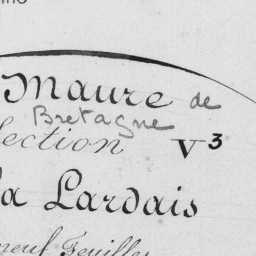 Maure de
Bretagne
Section V3
La Lardais
neuf Feuilles